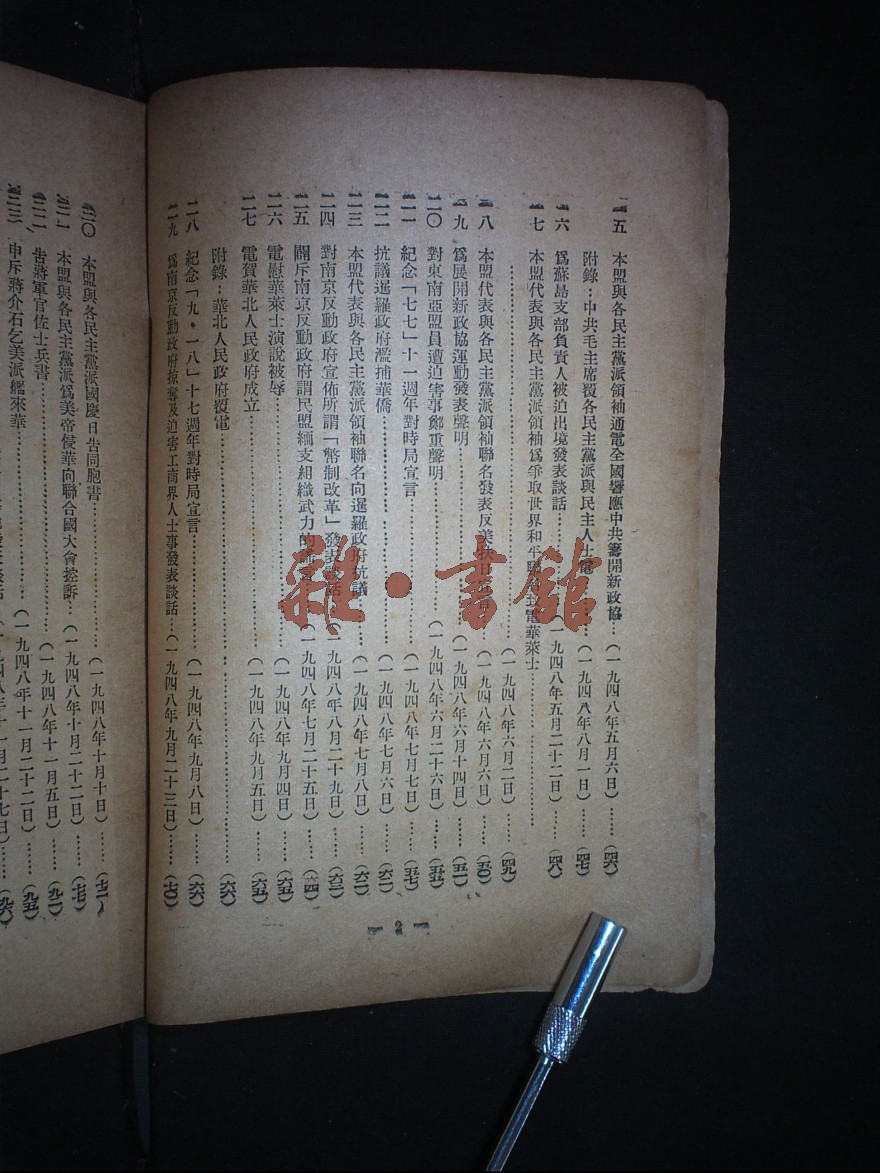 一五　本盟與各民主黨派領袖通電全國響應中共籌開新政協…（一九四八年五月六日）……（四六）
附錄：中共毛主席覆各民主黨派與民主人士電………（一九四八年八月一日）……（四七）
一六　爲蘇島支部負責人被迫出境發表談話…………（一九四八年五月二十二日）……（四八）
一七　本盟代表與各民主黨派領袖爲爭取世界和平聯名電華萊士……………
……………（一九四八年六月二日）……（四九）
一八　本盟代表與各民主黨派領袖聯名發表反美扶日宣言（一九四八年六月六日）……（五〇）
一九　爲展開新政協運動發表聲明……………（一九四八年六月十四日）……（五一）
二〇　對東南亞盟員遭迫害事鄭重聲明…………（一九四八年六月二十六日）……（五五）
二一　紀念「七七」十一週年對時局宣言…………（一九四八年七月七日）……（五七）
二二　抗議暹羅政府濫捕華僑……………（一九四八年七月六日）……（六一）
二三　本盟代表與各民主黨派領袖聯名向暹羅政府抗議（一九四八年七月八日）……（六二）
二四　對南京反動政府宣佈所謂「幣制改革」發表談話（一九四八年八月二十九日）……（六三）
二五　闢斥南京反動政府謂民盟緬支組織武力的（一九四八年七月二十五日）……（四）
二六　電慰華萊士演說被辱……………（一九四八年九月四日）……（六五）
二七　電賀華北人民政府成立……………（一九四八年九月五日）……（六五）
附錄：華北人民政府覆電……………（六六）
二八　紀念「九・一八」十七週年對時局宣言…………（一九四八年九月八日）……（六六）
二九　爲南京反動政府掠奪及迫害工商界人士事發表談話……（一九四八年九月二十三日）……（七〇）
— 2 —
三〇　本盟與各民主黨派國慶日告同胞書……………（一九四八年十月十日）……（七二）
三一　本盟與各民主黨派爲美帝侵華向聯合國大會控訴…（一九四八年十月二十二日）……（七七）
三二　告蔣軍官佐士兵書……………（一九四八年十一月五日）……（九二）
三三　申斥蔣介石乞美派艦來華……（一九四八年十一月二十二日）……（九五）
雜・書館